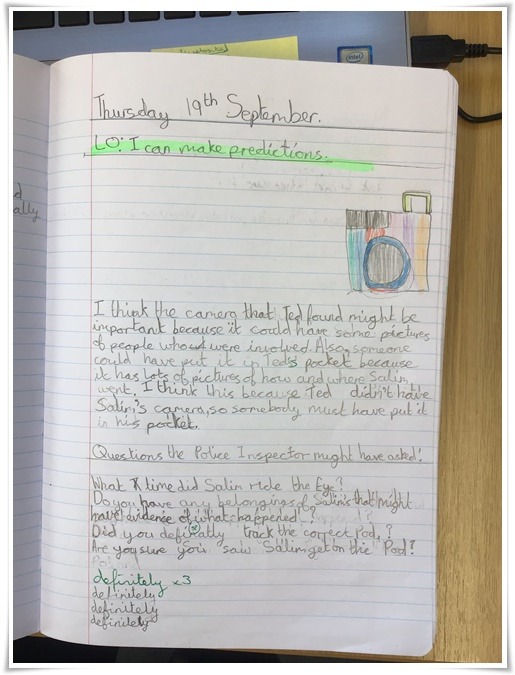 Thursday 19th September.
LO: I can make predictions.
I think the camera that Ted found might be
important because it could have some pictures
of people who were involved. Also, someone
could have put it in Ted's pocket because
it has lots of pictures of how and where Salim
went. I think this because Ted didn't have
Salim's camera, so somebody must have put it
in his pocket.
Questions the Police Inspector might have asked:
What time did Salim ride the Eye?
Do you have any belongings of Salim's that might
have evidence of what happened?
Did you definally track the correct Pod?
Are you sure you saw Salim get on the Pod?
definitely x3
definitely
definitely
definitely
intel